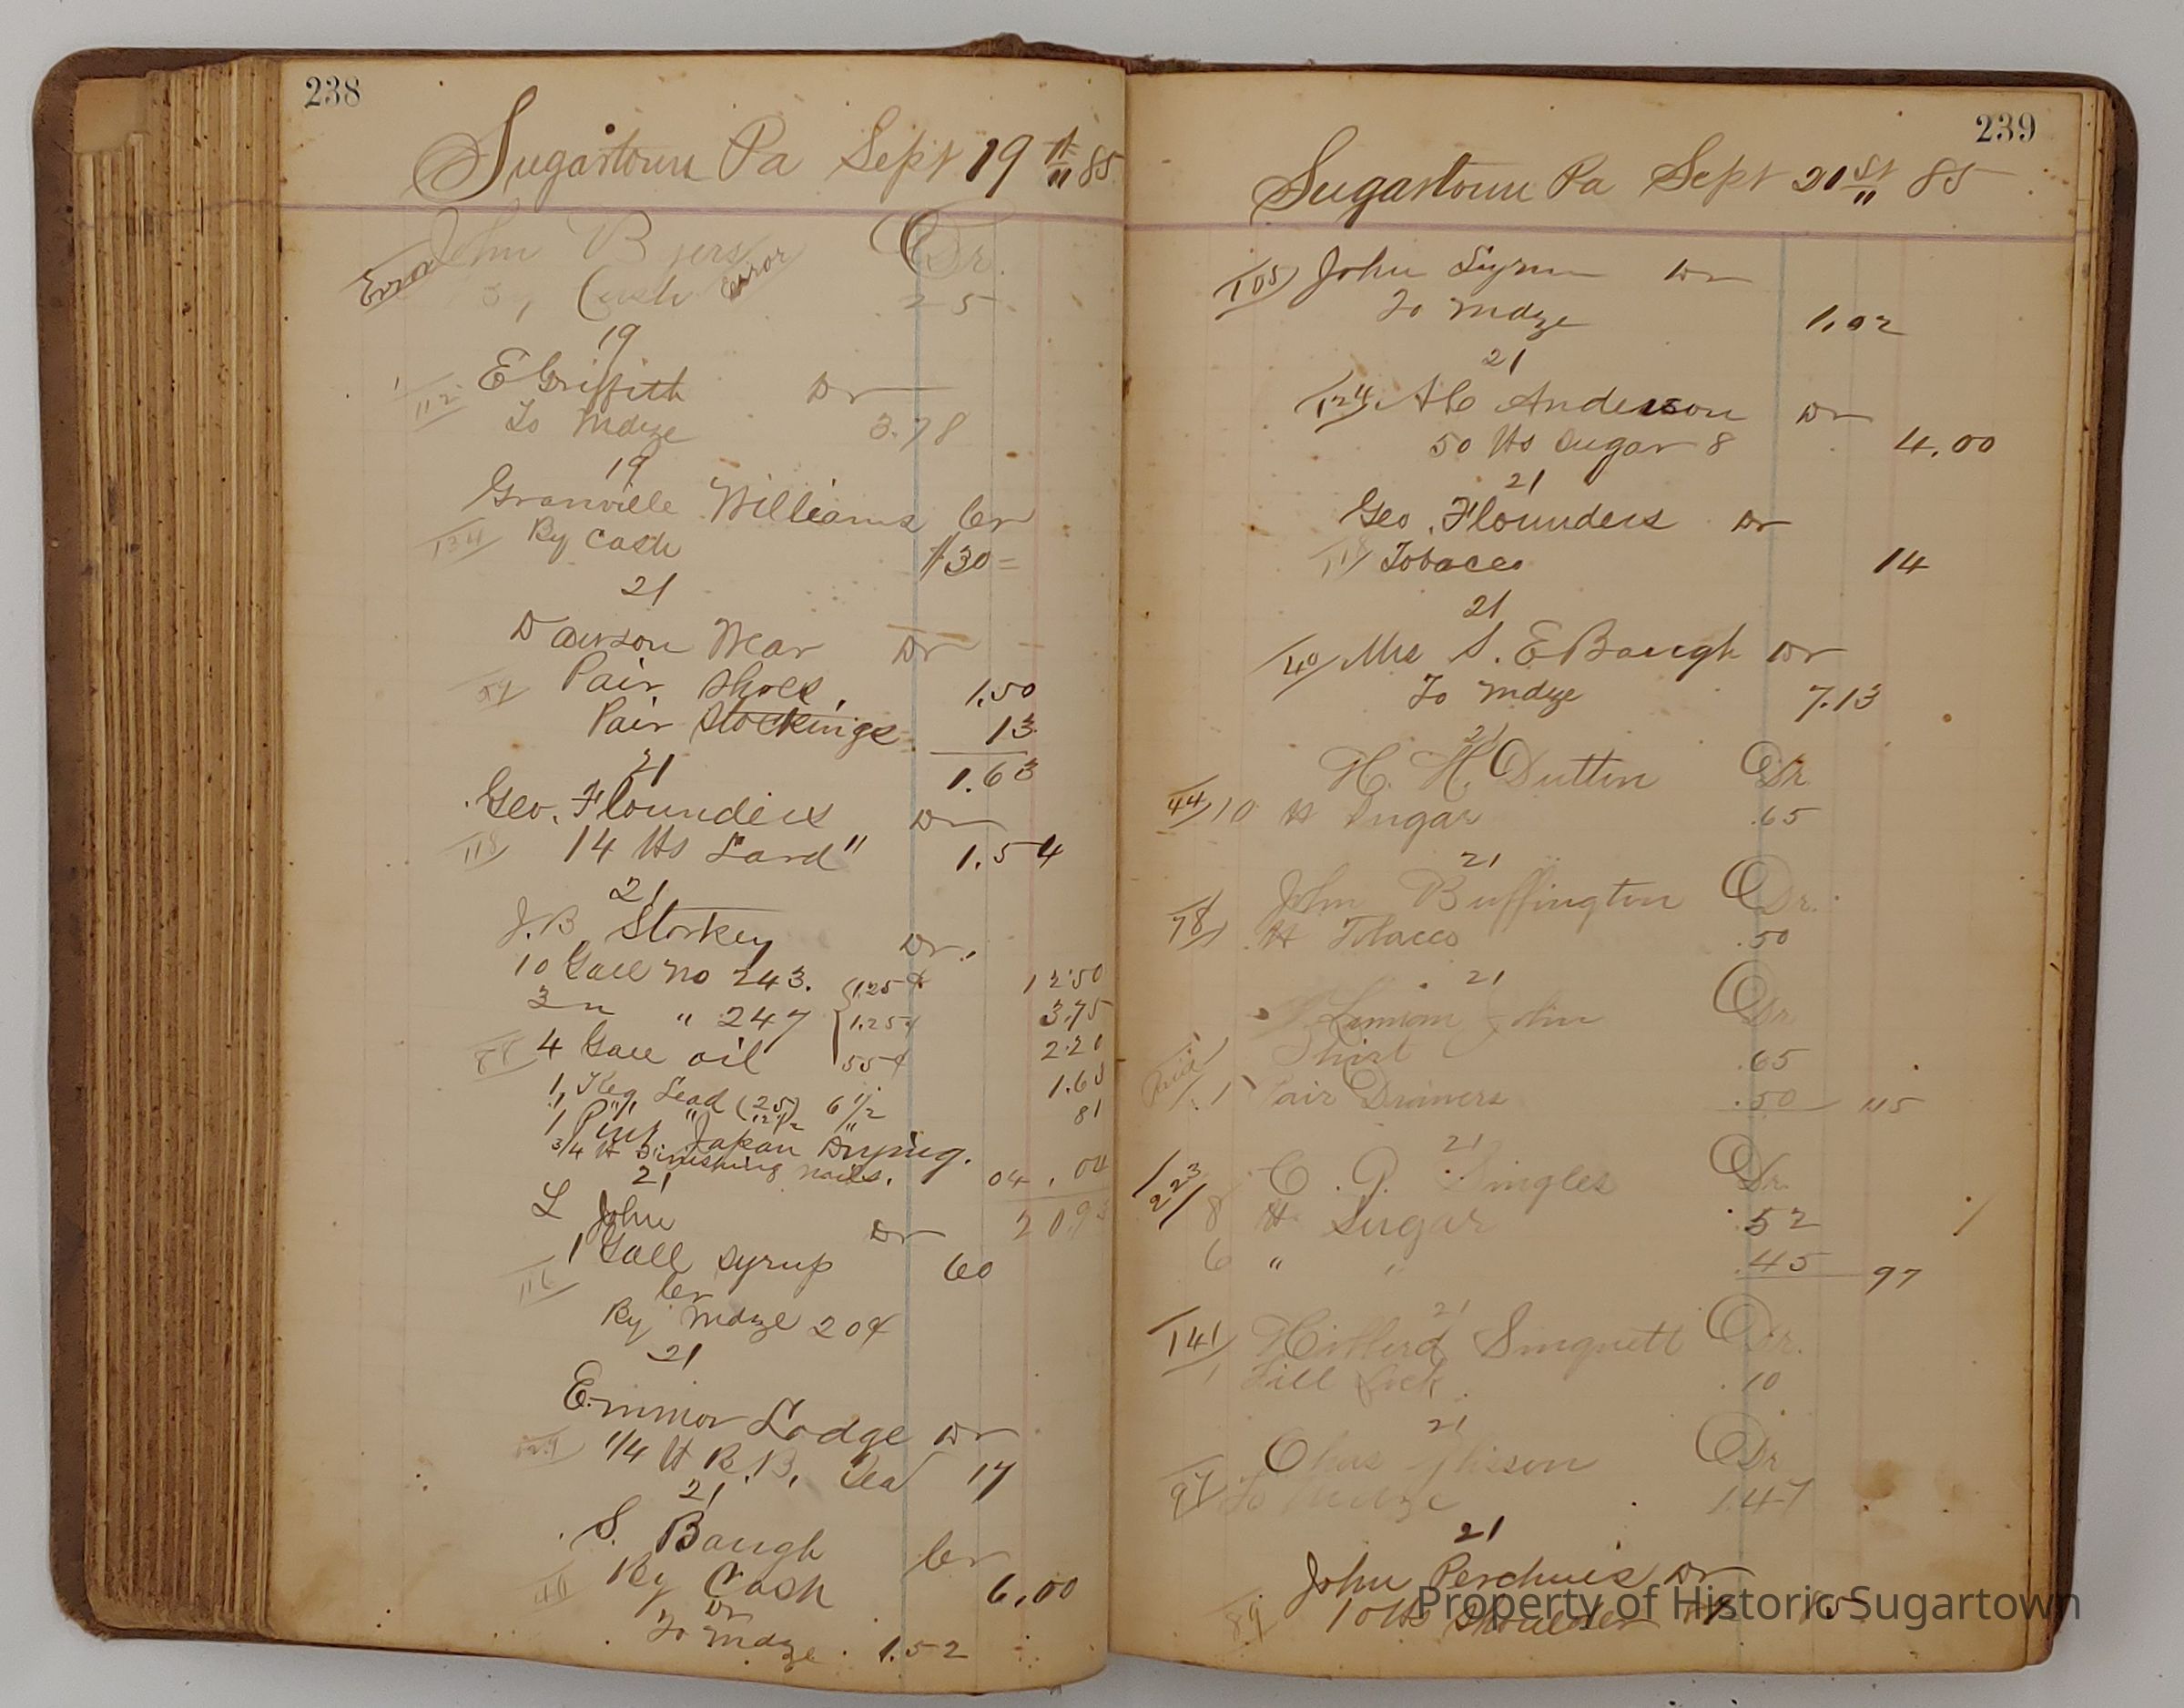 238
Sugartown Pa Sept 19th 85
John Byers Dr.
Error By Cash Error 25
19
E Griffith Dr
112 To Mdze 3.78
19
Granville Williams Cr
134 By Cash $30=
21
Dawson Wear Dr
59 Pair Shoes, 1.50
Pair Stockings 13
21 1.63
Geo. Flounders Dr
118 14 lbs Lard" 1.54
21
J.B. Storkey Dr.
10 Gall No 243. 1.25¢ 12.50
3 " " 247 1.25¢ 3.75
4 Gall oil 55¢ 2.20
1 Keg Lead (25) 6 1/2 1.63
1 " " 12 1/2 " 81
1 Pint Japan Drying.
3/4 lb Finishing nails. 04 . 04
21 20.93
L John Dr
1 Gall Syrup 60
116 Cr
By Mdze 20¢
21
Emmor Lodge Dr
129 1/4 lb B.B. Tea 17
21
S. Baugh Cr
40 By Cash 6.00
Dr
To Mdze. 1.52
239
Sugartown Pa Sept 21st 85
105 John Lynn Dr
To Mdze 1.02
21
124 A C Anderson Dr
50 lbs Sugar 8 4.00
21
Geo. Flounders Dr
118 Tobacco 14
21
40 Mrs S. E Baugh Dr
To Mdze 7.13
21
H. H. Dutton Dr
44 10 lb Sugar .65
21
John Buffington Dr.
78 lb Tobacco .50
21
John Dr.
Paid 1 Shirt .65
1 Pair Drawers .50 1.15
21
123 C. P. Dr.
22 8 lb Sugar .52
6 " " .45 97
21
141 Hibberd Dr.
1 Till Lock. .10
21
Chas Glisson Dr
97 To Mdze 1.47
21
John Perchuis Dr
89 10 lbs Shoulder 85
Property of Historic Sugartown